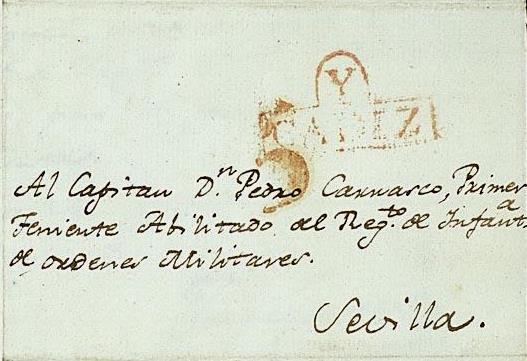 Y
CADIZ
5
Al Capitan D.n Pedro Carrasco, Primer
Teniente Abilitado del Reg.to de Infant.a
de ordenes Militares.
Sevilla.